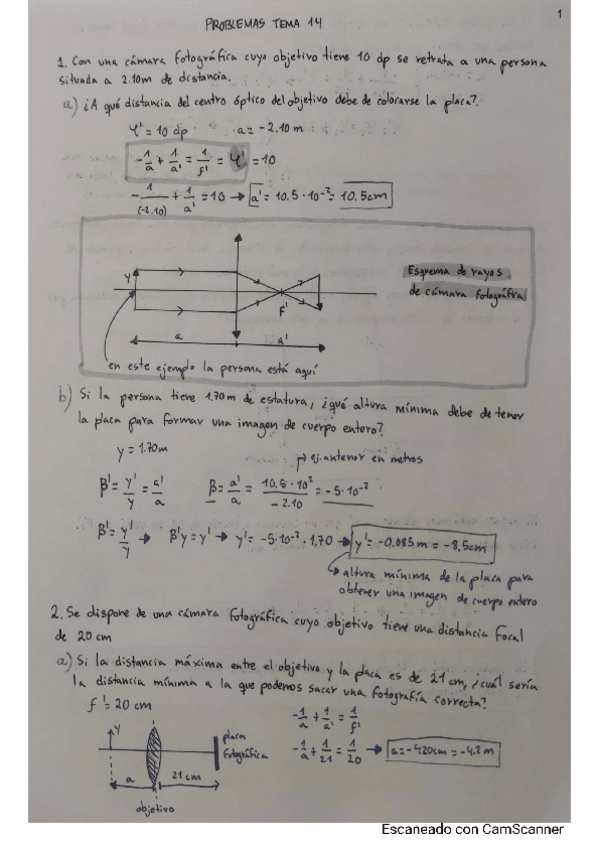 1
PROBLEMAS TEMA 14
1. Con una cámara fotográfica cuyo objetivo tiene 10 dp se retrata a una persona
situada a 2.10m de distancia.
a) ¿A qué distancia del centro óptico del objetivo debe de colocarse la placa?
φ' = 10 dp a = -2.10 m
-1/a + 1/a' = 1/f' = φ' = 10
-1/(-2.10) + 1/a' = 10 → a' = 10.5 · 10⁻² = 10.5cm
Esquema de rayos
de cámara fotográfica
y
F'
a a'
en este ejemplo la persona está aquí
b) Si la persona tiene 1.70m de estatura, ¿qué altura mínima debe de tener
la placa para formar una imagen de cuerpo entero?
y = 1.70m
ej. anterior en metros
β' = y'/y = a'/a β = a'/a = 10.5 · 10² / -2.10 = -5·10⁻²
β' = y'/y → β'y = y' → y' = -5·10⁻² · 1.70 → y' = -0.085m = -8.5cm
altura mínima de la placa para
obtener una imagen de cuerpo entero
2. Se dispone de una cámara fotográfica cuyo objetivo tiene una distancia focal
de 20 cm
a) Si la distancia máxima entre el objetivo y la placa es de 21 cm, ¿cuál sería
la distancia mínima a la que podemos sacar una fotografía correcta?
f' = 20 cm
-1/a + 1/a' = 1/f'
-1/a + 1/21 = 1/20 → a = -420cm = -4.2 m
y
placa
fotográfica
a 21 cm
objetivo
Escaneado con CamScanner